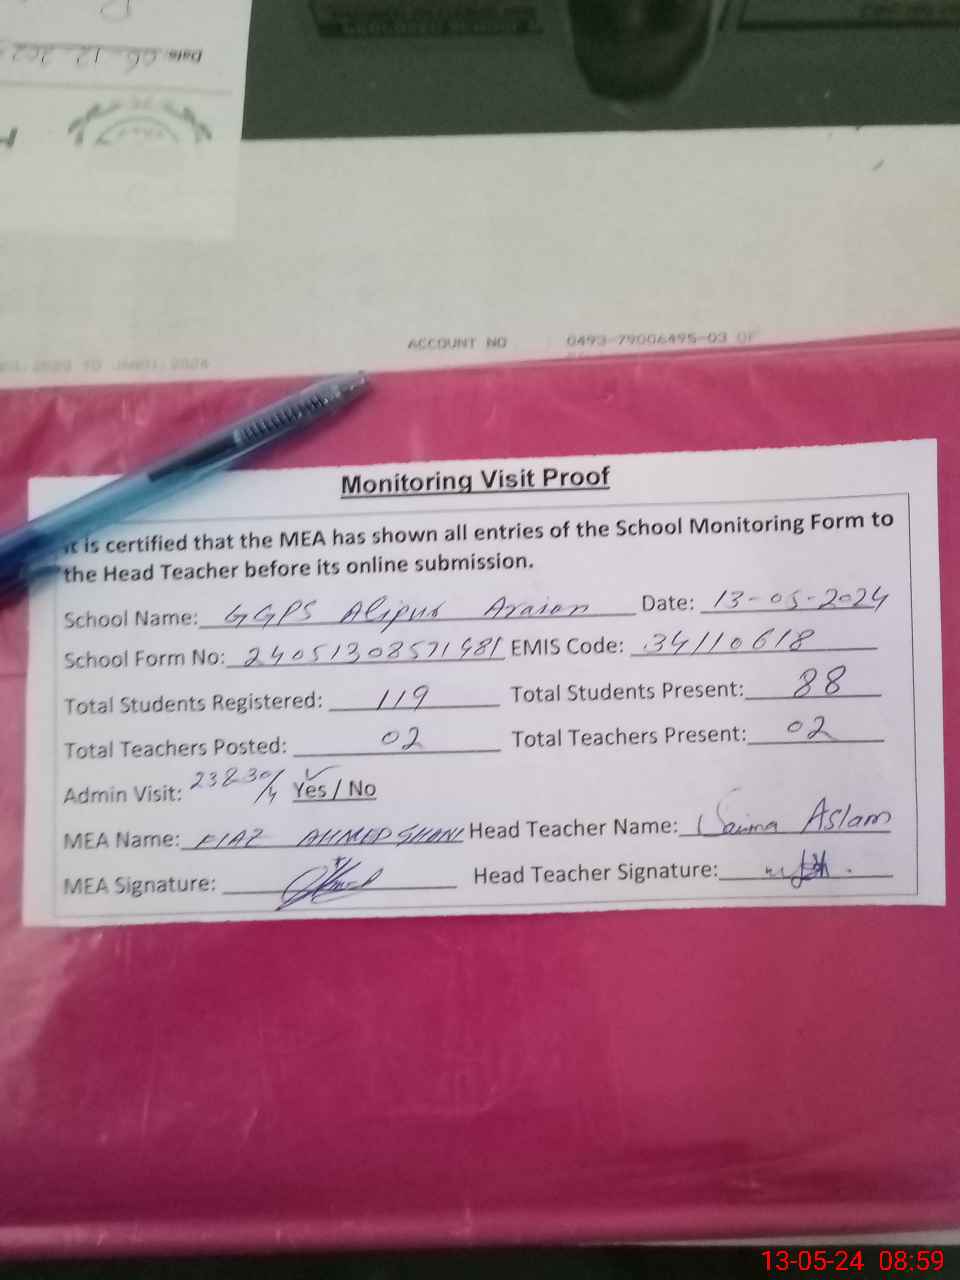 Date: 06-12-202
ACCOUNT NO 0493-79006495-03 OF
Monitoring Visit Proof
It is certified that the MEA has shown all entries of the School Monitoring Form to
the Head Teacher before its online submission.
School Name: GGPS Alipur Araian Date: 13-05-2024
School Form No: 24051308571481 EMIS Code: 34110618
Total Students Registered: 119 Total Students Present: 88
Total Teachers Posted: 02 Total Teachers Present: 02
Admin Visit: 23830/4 Yes / No
MEA Name: FIAZ AHMED Head Teacher Name: Saima Aslam
MEA Signature: Head Teacher Signature:
13-05-24 08:59